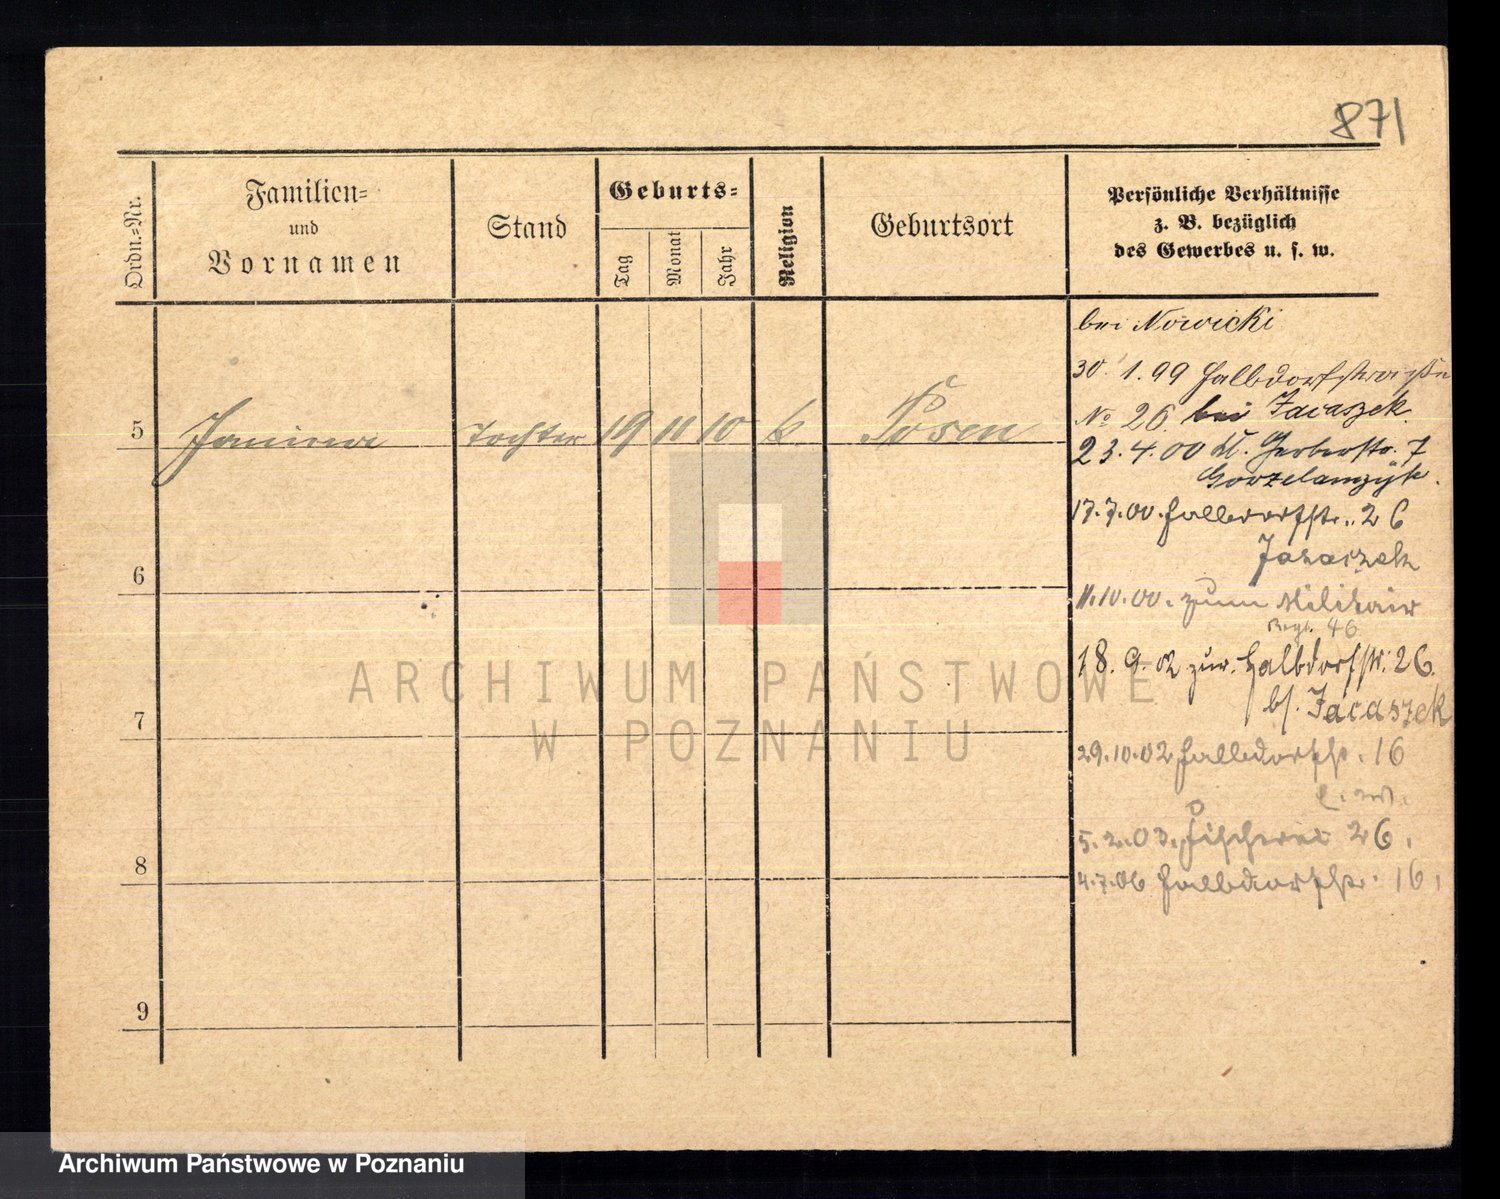 871
Ordn.-Nr.
Familien-
und
Vornamen
Stand
Geburts-
Tag
Monat
Jahr
Religion
Geburtsort
Persönliche Verhältnisse
z. B. bezüglich
des Gewerbes u. s. w.
bei Nowicki
30. 1. 99 Halbdorfstraße
No 26. bei Jacaszek
23. 4. 00 Kl. Gerberstr. 7
5 Janina Tochter 19 11 10 k. Posen
17. 7. 00. Halbdorfstr. 26
6
11. 10. 00. zum Militair
Regt. 46
18. 9. 02 zur. Halbdorfstr. 26.
b/. Jacaszek
7
29. 10. 02 Halbdorfstr. 16
5. 2. 03. Fischerei 26.
8
4. 7. 06 Halbdorfstr. 16.
9
ARCHIWUM PAŃSTWOWE
W POZNANIU
Archiwum Państwowe w Poznaniu